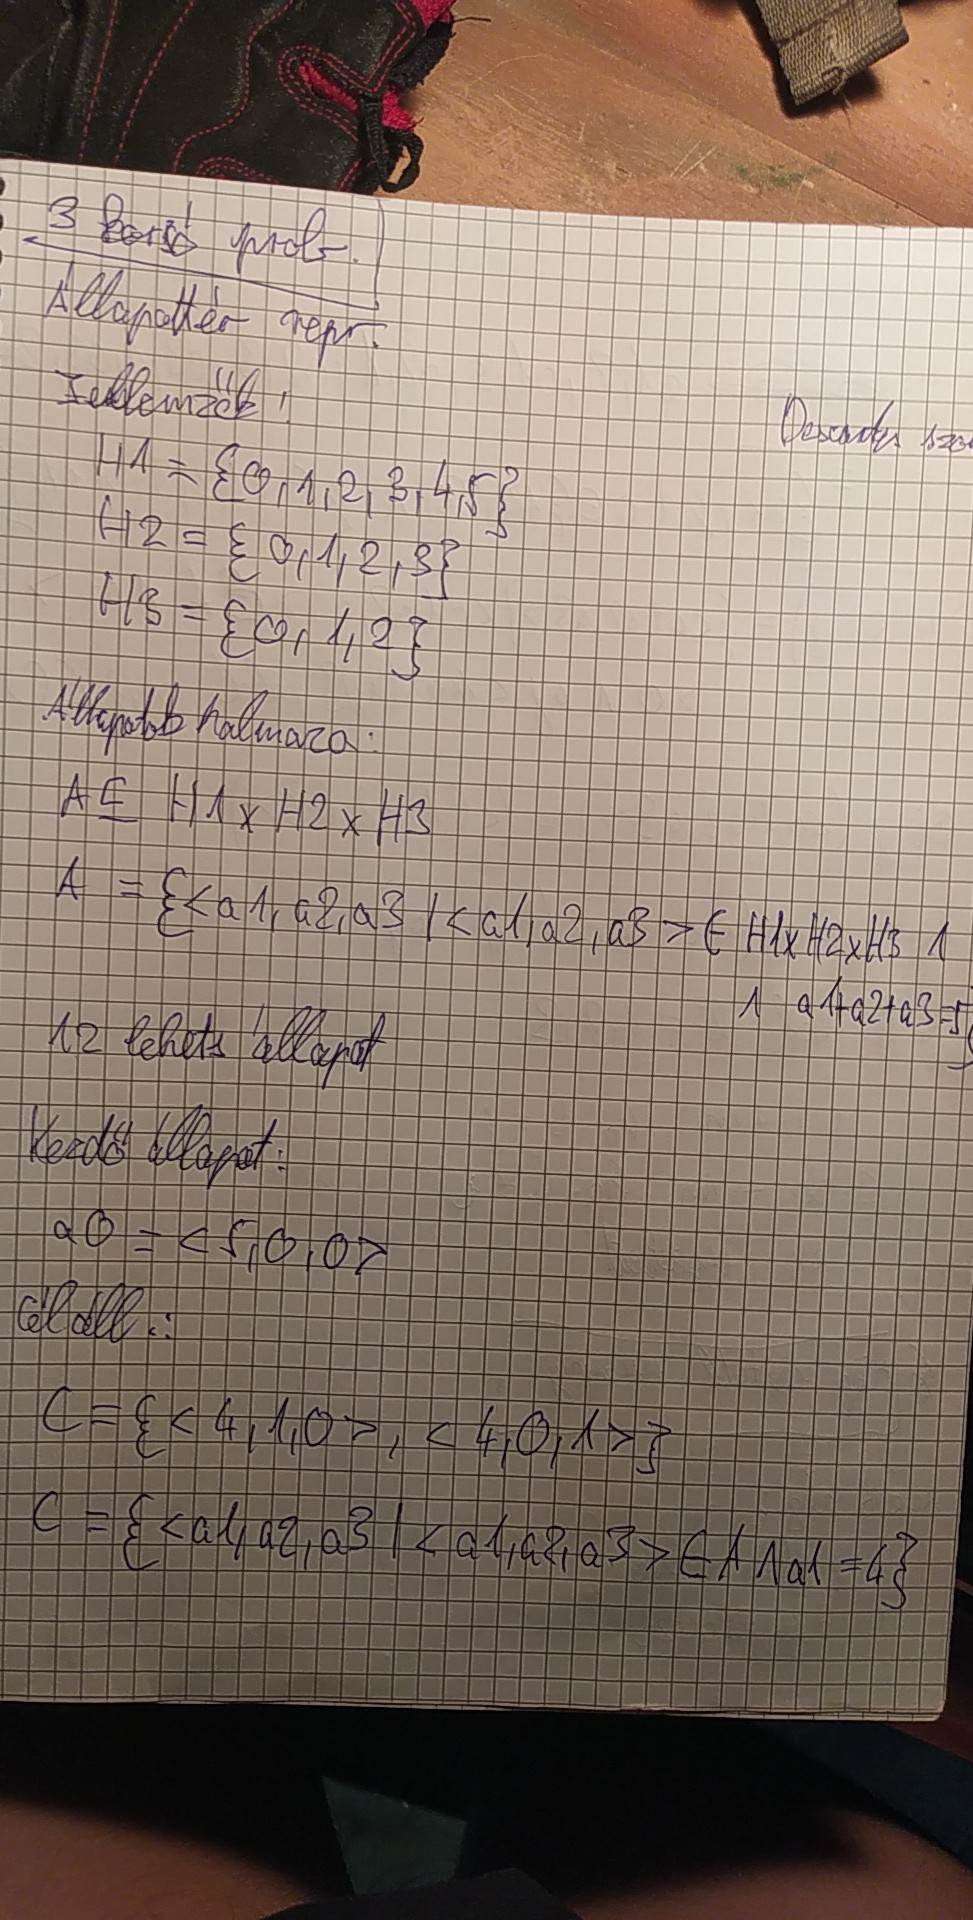 3 korsó prob.
Állapottér repr.
Jellemzők:
H1 = {0,1,2,3,4,5}
H2 = {0,1,2,3}
H3 = {0,1,2}
Állapotok halmaza:
A ⊆ H1 x H2 x H3
A = {<a1, a2, a3 | <a1, a2, a3> ∈ H1xH2xH3 ∧
∧ a1+a2+a3=5}
12 lehets állapot
Kezdő állapot:
a0 = <5,0,0>
Cél áll.:
C = {<4,1,0>, <4,0,1>}
C = {<a1, a2, a3 | <a1, a2, a3> ∈ A ∧ a1 = 4}